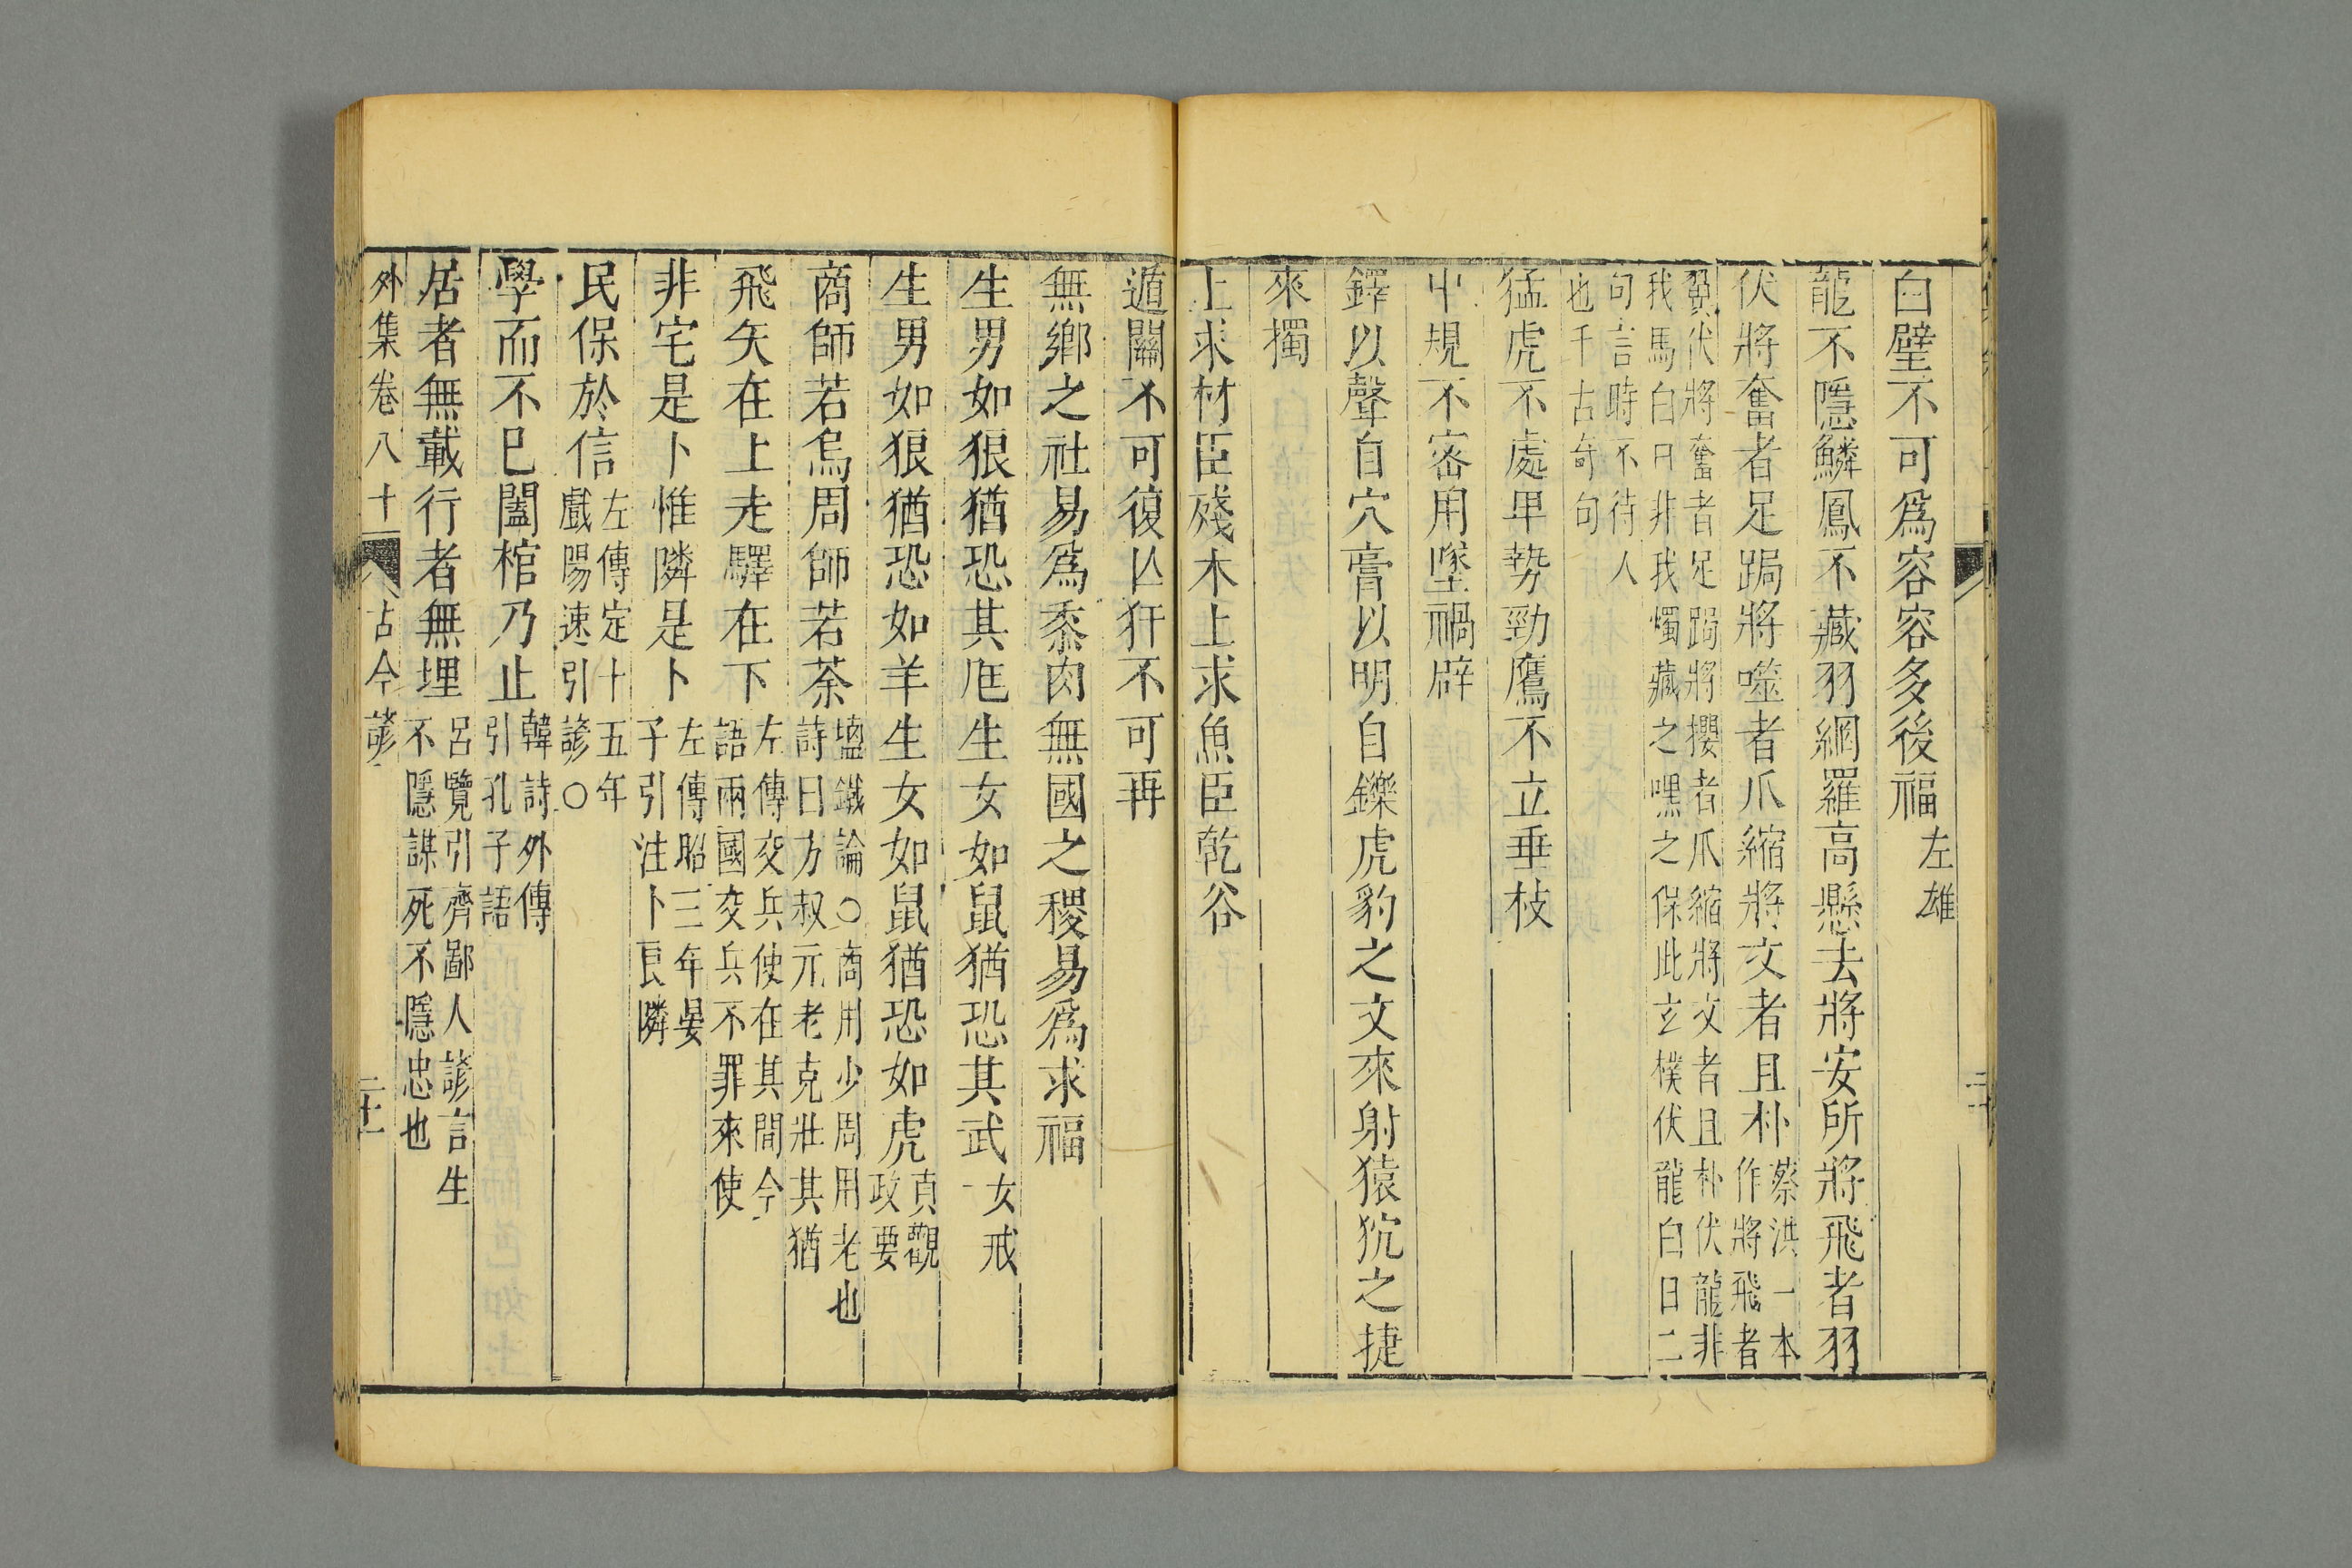 白璧不可爲容容多後福左雄
龍不隱鱗鳳不藏羽網羅高懸去將安所將飛者羽
伏將奮者足跼將噬者爪縮將文者且朴蔡洪一本作將飛者
翼伏將奮者足跼將攫者爪縮將文者且朴伏龍非
我馬白日非我燭藏之嘿之保此玄樸伏龍白日二
句言時不待人
也千古奇句
猛虎不處卑勢勁鷹不立垂枝
中規不密用墜禍辟
鐸以聲自穴膏以明自鑠虎豹之文來射猿狖之捷
來擉
上求材臣殘木上求魚臣乾谷
遁關不可復亾犴不可再
無鄉之社易爲黍肉無國之稷易爲求福
生男如狼猶恐其尫生女如鼠猶恐其武女戒
生男如狼猶恐如羊生女如鼠猶恐如虎貞觀政要
商師若烏周師若荼塩鐵論○商用少周用老也詩曰方叔元老克壯其猶
飛矢在上走驛在下左傳交兵使在其間今語兩國交兵不罪來使
非宅是卜惟隣是卜左傳昭三年晏子引注卜良隣
民保於信左傳定十五年戲陽速引諺○
學而不已闔棺乃止韓詩外傳引孔子語
居者無載行者無埋呂覽引齊鄙人諺言生不隱謀死不隱忠也
外集卷八十一 古今諺 二十一